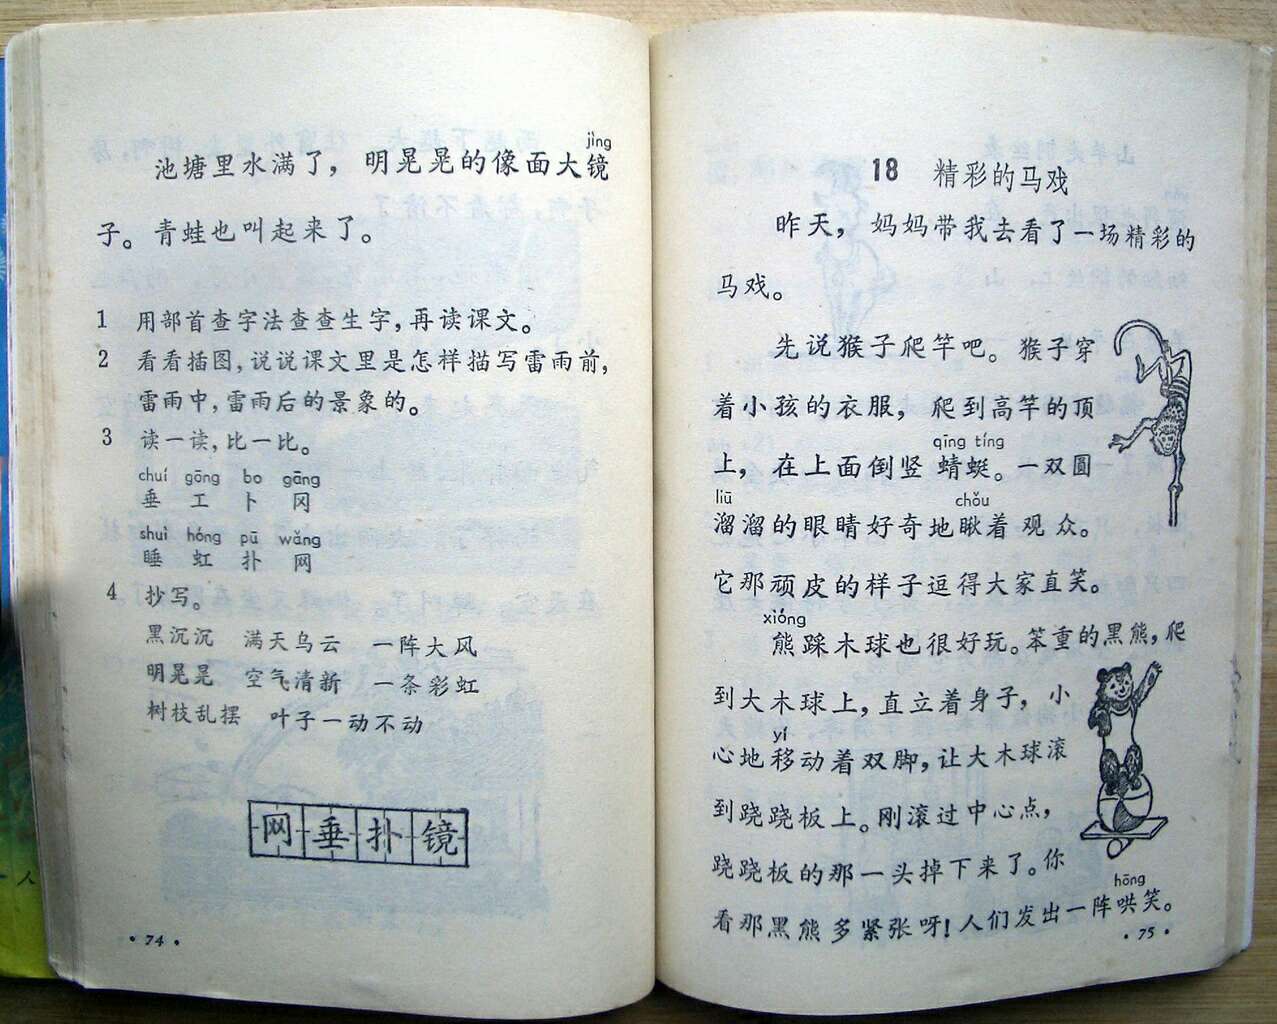 jìng
池塘里水满了，明晃晃的像面大镜
子。青蛙也叫起来了。
1 用部首查字法查查生字，再读课文。
2 看看插图，说说课文里是怎样描写雷雨前，
雷雨中，雷雨后的景象的。
3 读一读，比一比。
chuí gōng bo gāng
垂 工 卜 冈
shuì hóng pū wǎng
睡 虹 扑 网
4 抄写。
黑沉沉 满天乌云 一阵大风
明晃晃 空气清新 一条彩虹
树枝乱摆 叶子一动不动
网垂扑镜
·74·
18 精彩的马戏
昨天，妈妈带我去看了一场精彩的
马戏。
先说猴子爬竿吧。猴子穿
着小孩的衣服，爬到高竿的顶
qīng tíng
上，在上面倒竖蜻蜓。一双圆
liū chǒu
溜溜的眼睛好奇地瞅着观众。
它那顽皮的样子逗得大家直笑。
xióng
熊踩木球也很好玩。笨重的黑熊，爬
到大木球上，直立着身子，小
yí
心地移动着双脚，让大木球滚
到跷跷板上。刚滚过中心点，
跷跷板的那一头掉下来了。你
hōng
看那黑熊多紧张呀！人们发出一阵哄笑。
·75·